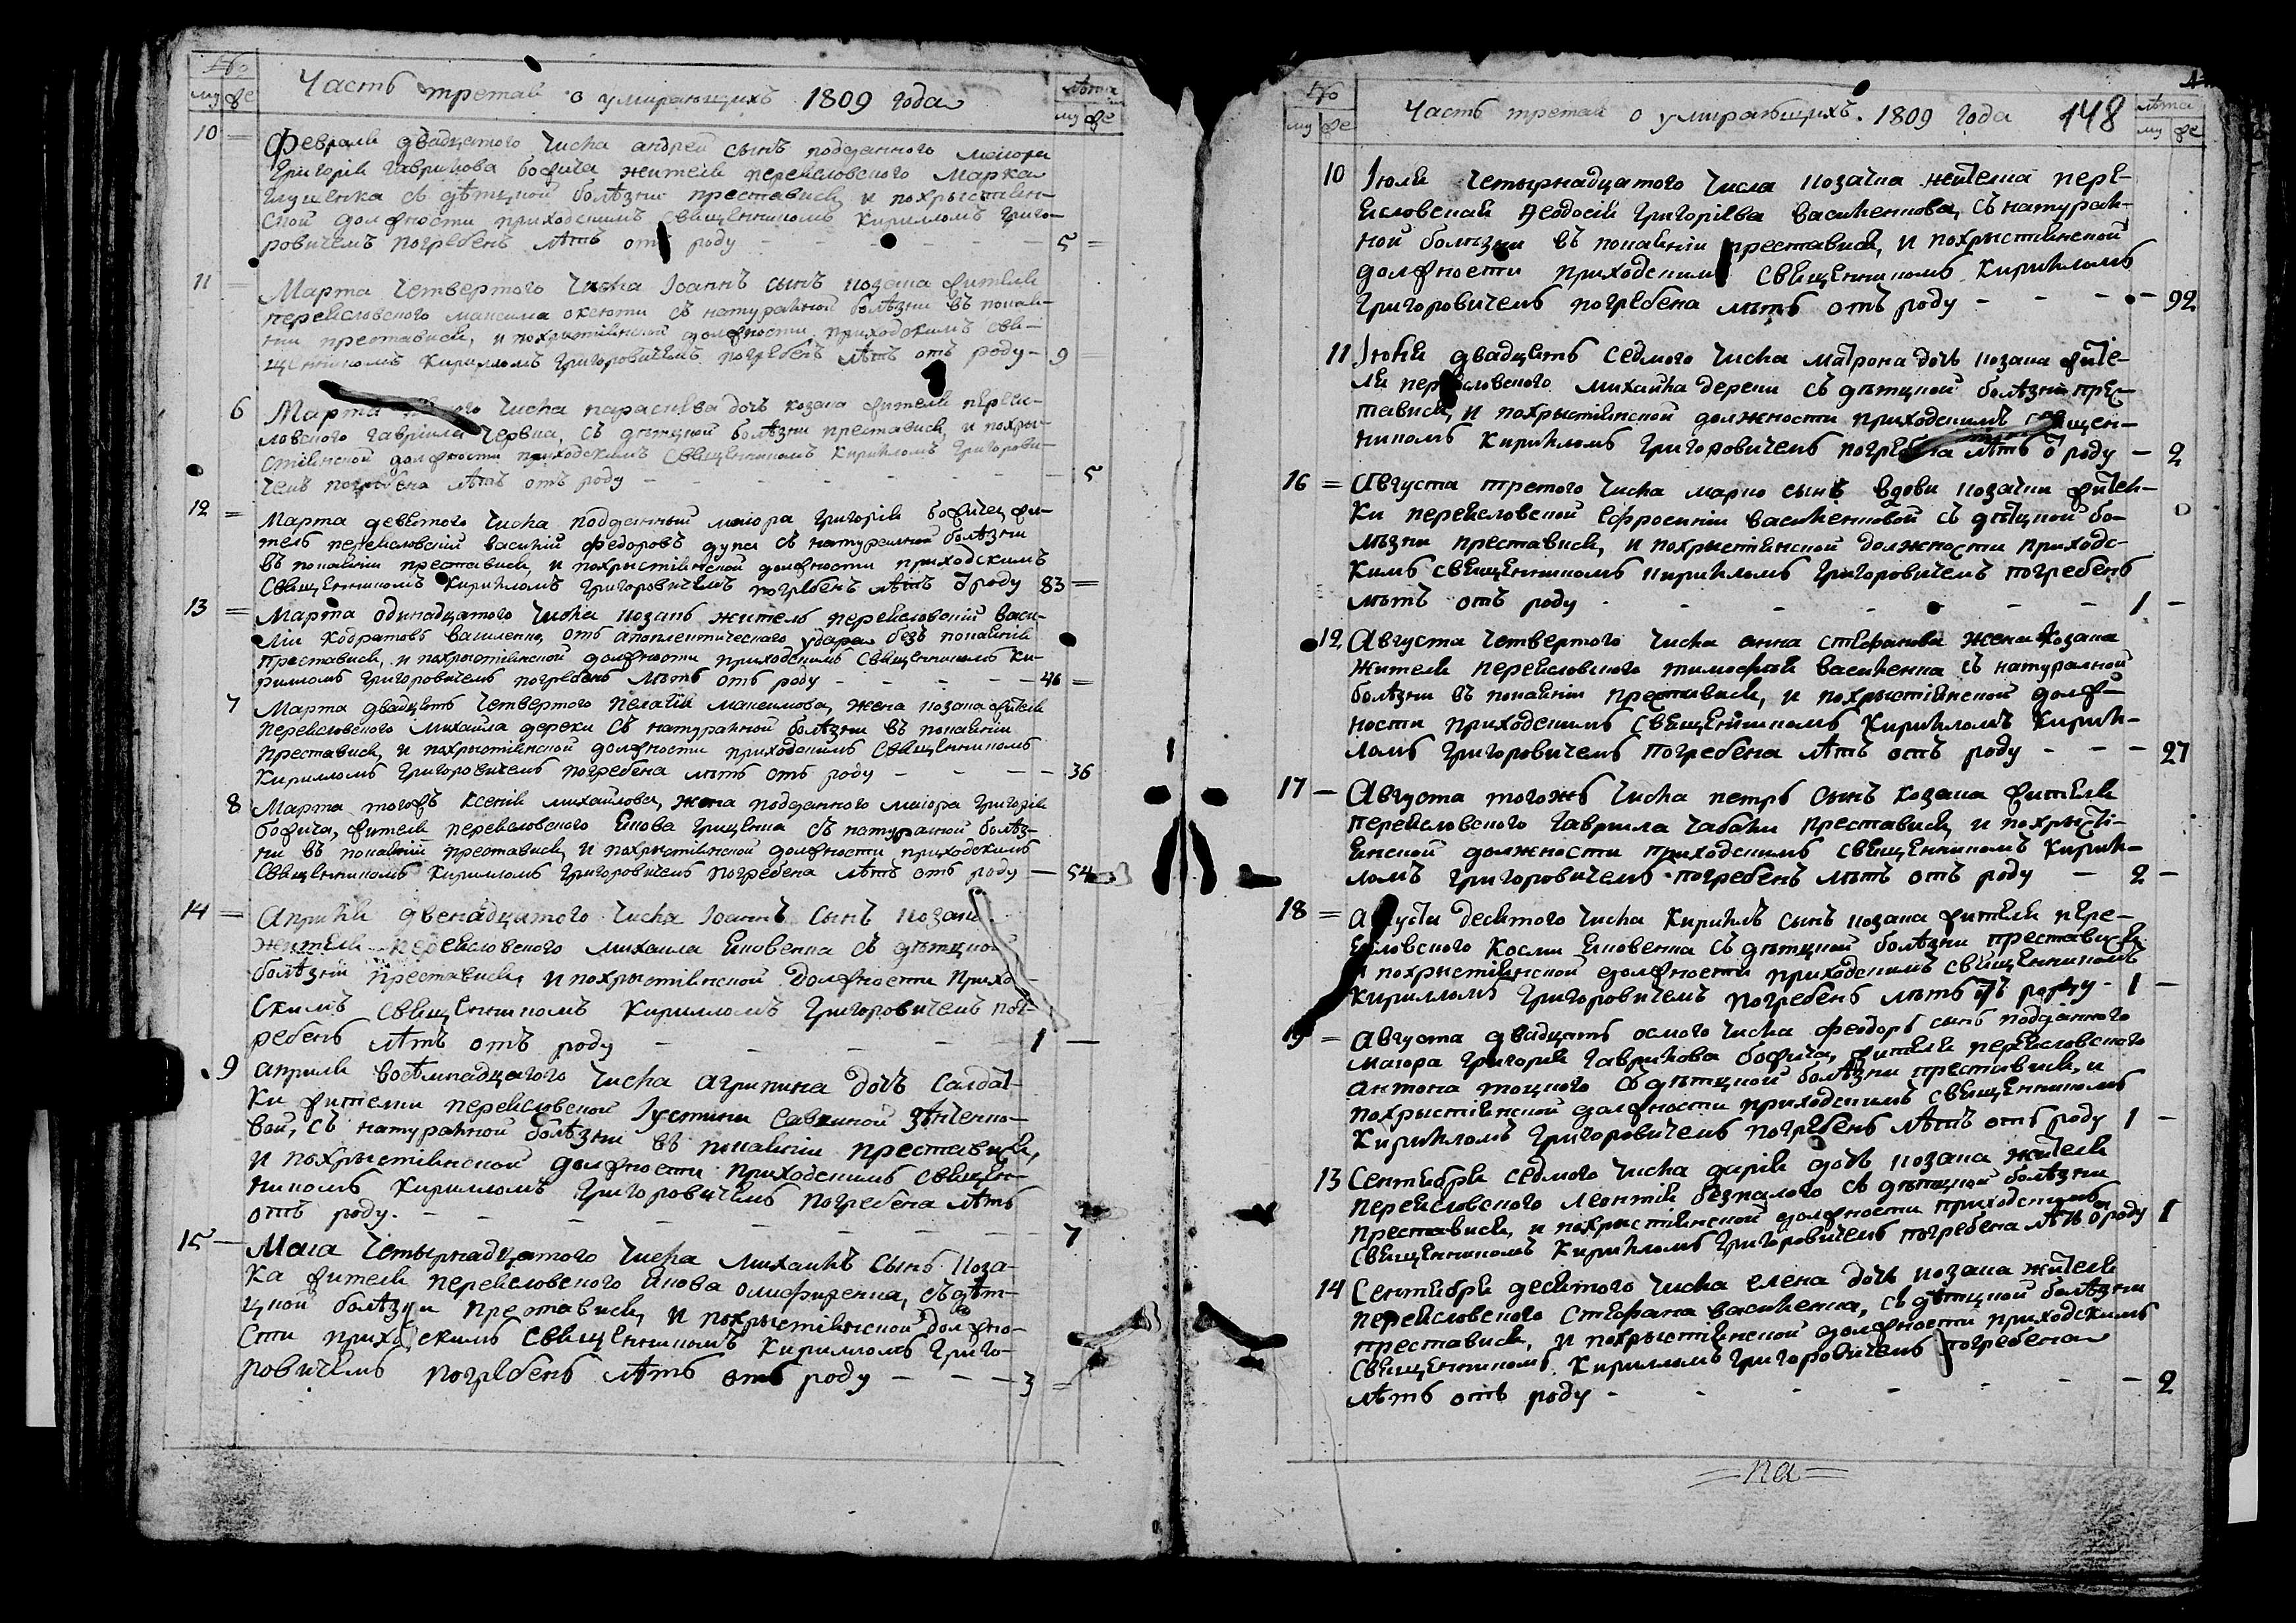 Часть третая о умирающихъ 1809 года
му фе
лѣта
му фе
10 Февраля двадцатого числа андрей сынъ подданного маіора
Григорія Гаврилова божича жителя переясловского Марка
съ дѣтцкой болѣзни преставися, и похрыстіян-
ской должности приходскимъ священникомъ Кириломъ Григо-
ровичемъ погребенъ лѣтъ отъ роду 5
11 Марта четвертого числа Іоаннъ сынъ козака жителя
переясловского максима съ натуралной болѣзни въ покая-
нии преставися, и похристіянской должности приходскимъ свя-
щенникомъ Кириломъ Григоровичемъ погребенъ лѣтъ отъ роду 9
6 Марта числа параскева дочъ козака жителя переяс-
ловского гавріила червца, съ дѣтцкой болѣзни преставися, и похры-
стіянской должности приходскимъ священникомъ Кириломъ Григорови-
чемъ погребена лѣтъ отъ роду 5
12 Марта девятого числа подданный маіора Григорія божича жи-
тель переясловскій василій федоровъ дупа съ натуралной болѣзни
въ покаяніи преставися, и похрыстіянской должности приходскимъ
Священникомъ Кириломъ Григоровичемъ погребенъ лѣтъ ѿ роду 83
13 Марта одинадцатого числа козакъ житель переясловскій Васи-
лій Кодратовъ василенко, отъ апоплектического удара безъ покаянія
преставися, и похрыстіянской должности приходскимъ священникомъ Ки-
риломъ Григоровичемъ погребенъ лѣтъ отъ роду 46
7 Марта двадцять четвертого пелагія максимова, жена козака жителя
Переясловского Михаила дереки съ натуралной болѣзни въ покаяніи
Преставися, и похрыстіянской должности приходскимъ священникомъ
Кириломъ Григоровичемъ погребена лѣтъ отъ роду 36
8 Марта тогожъ ксенія михайлова, жена подданного маіора Григорія
божича, жителя переясловского якова грищенка съ натуралной болѣз-
ни въ покаяніи преставися, и похрыстіянской должности приходскимъ
Священникомъ Кириломъ Григоровичемъ погребена лѣтъ отъ роду 54
14 Априля двенадцатого числа Іоаннъ сынъ козака
жителя переясловского михаила яковенка съ дѣтцкой
болѣзни преставися, и похрыстіянской должности прихо-
скимъ священникомъ Кириломъ Григоровичемъ пог-
ребенъ лѣтъ отъ роду 1
9 априля восѣмнадцатого числа агрипина дочъ салдат-
ки жителки переясловской Іустины савкиной
вой, съ натуралной болѣзни въ покаяніи преставися,
и похрыстіянской должности приходскимъ священ-
никомъ Кириломъ Григоровичемъ погребена лѣтъ
отъ роду. 7
15 Маія четырнадцатого числа михаилъ сынъ коза-
ка жителя переясловского якова олифиренка, съ дѣт-
цкой болѣзни преставися, и похрыстіянской должно-
сти приходскимъ священникомъ Кириломъ Григо-
ровичемъ погребенъ лѣтъ отъ роду 3
Часть третая о умирающихъ. 1809 года 148
му фе
лѣта
му фе
10 Іюля четырнадцатого числа козачка жителка пере-
ясловская Феодосія Григоріева василенкова, съ натурал-
ной болѣзни въ покаяніи преставися, и похрыстіянской
должности приходскимъ священникомъ Кириломъ
Григоровичемъ погребена лѣтъ отъ роду 92
11 Іюля двадцять седмого числа матрона дочъ козака жите-
ля переясловского михайла дереки съ дѣтцкой болѣзни прес-
тавися, и похрыстіянской должности приходскимъ священ-
никомъ Кириломъ Григоровичемъ погребена лѣтъ ѿ роду 2
16 Августа третого числа марко сынъ вдови козачки жител-
ки переясловской Ефросиніи василенковой съ дѣтцкой бо-
лѣзни преставися, и похрыстіянской должности приходс-
кимъ священникомъ Кириломъ Григоровичемъ погребенъ
лѣтъ отъ роду 1
12 Августа четвертого числа анна стефанова жена козака
жителя переясловского тимофія василенка съ натуралной
болѣзни въ покаяніи преставися, и похрыстіянской долж-
ности приходскимъ священникомъ Кириломъ Кирил-
ломъ Григоровичемъ погребена лѣтъ отъ роду 27
17 Августа тогожъ числа петръ сынъ козака жителя
переясловского гаврила чабачи преставися, и похрысті-
янской должности приходскимъ священникомъ Кирил-
ломъ Григоровичемъ погребенъ лѣтъ отъ роду 2
18 Августа десятого числа Кирилъ сынъ козака жителя пере-
ясловского Косми яковенка съ дѣтцкой болѣзни преставися
и похрыстіянской должности приходскимъ священникомъ
Кириломъ Григоровичемъ погребенъ лѣтъ отъ роду 1
19 Августа двадцять осмого числа феодоръ сынъ подданного
маіора Григорія Гаврилова божича, жителя переясловского
антона тоцкого съ дѣтцкой болѣзни преставися, и
похрыстіянской должности приходскимъ священникомъ
Кириломъ Григоровичемъ погребенъ лѣтъ отъ роду 1
13 Сентября седмого числа дарія дочъ козака жителя
переясловского леонтія безпалого съ дѣтцкой болѣзни
преставися, и похрыстіянской должности приходскимъ
священникомъ Кириломъ Григоровичемъ погребена лѣтъ ѿ роду 1
14 Сентября десятого числа елена дочъ козака жителя
переясловского стефана василенка, съ дѣтцкой болѣзни
преставися, и похрыстіянской должности приходскимъ
священникомъ Кириломъ Григоровичемъ погребена
лѣтъ отъ роду 2
на